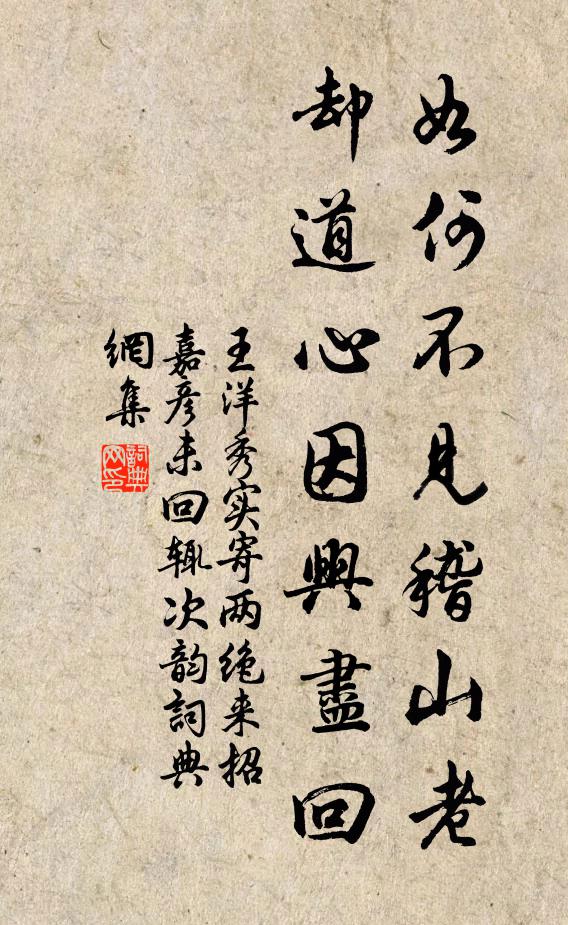 如何不見稽山老
却道心因興盡回
王洋秀实寄两绝来招
嘉彦未回辄次韵詞典
網集
詞典
网印